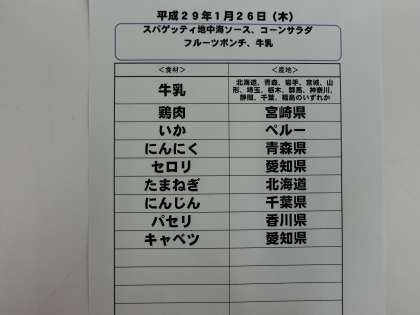 平成29年1月26日（木）
スパゲッティ地中海ソース、コーンサラダ
フルーツポンチ、牛乳
＜食材＞ ＜産地＞
牛乳 北海道、青森、岩手、宮城、山
形、埼玉、栃木、群馬、神奈川、
静岡、千葉、福島のいずれか
鶏肉 宮崎県
いか ペルー
にんにく 青森県
セロリ 愛知県
たまねぎ 北海道
にんじん 千葉県
パセリ 香川県
キャベツ 愛知県